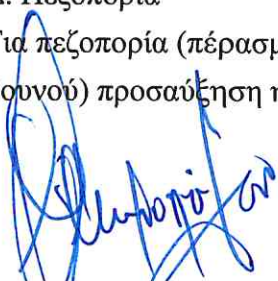 Πεζοπορία
Για πεζοπορία (πέρασμ
ουνού) προσαύξηση η